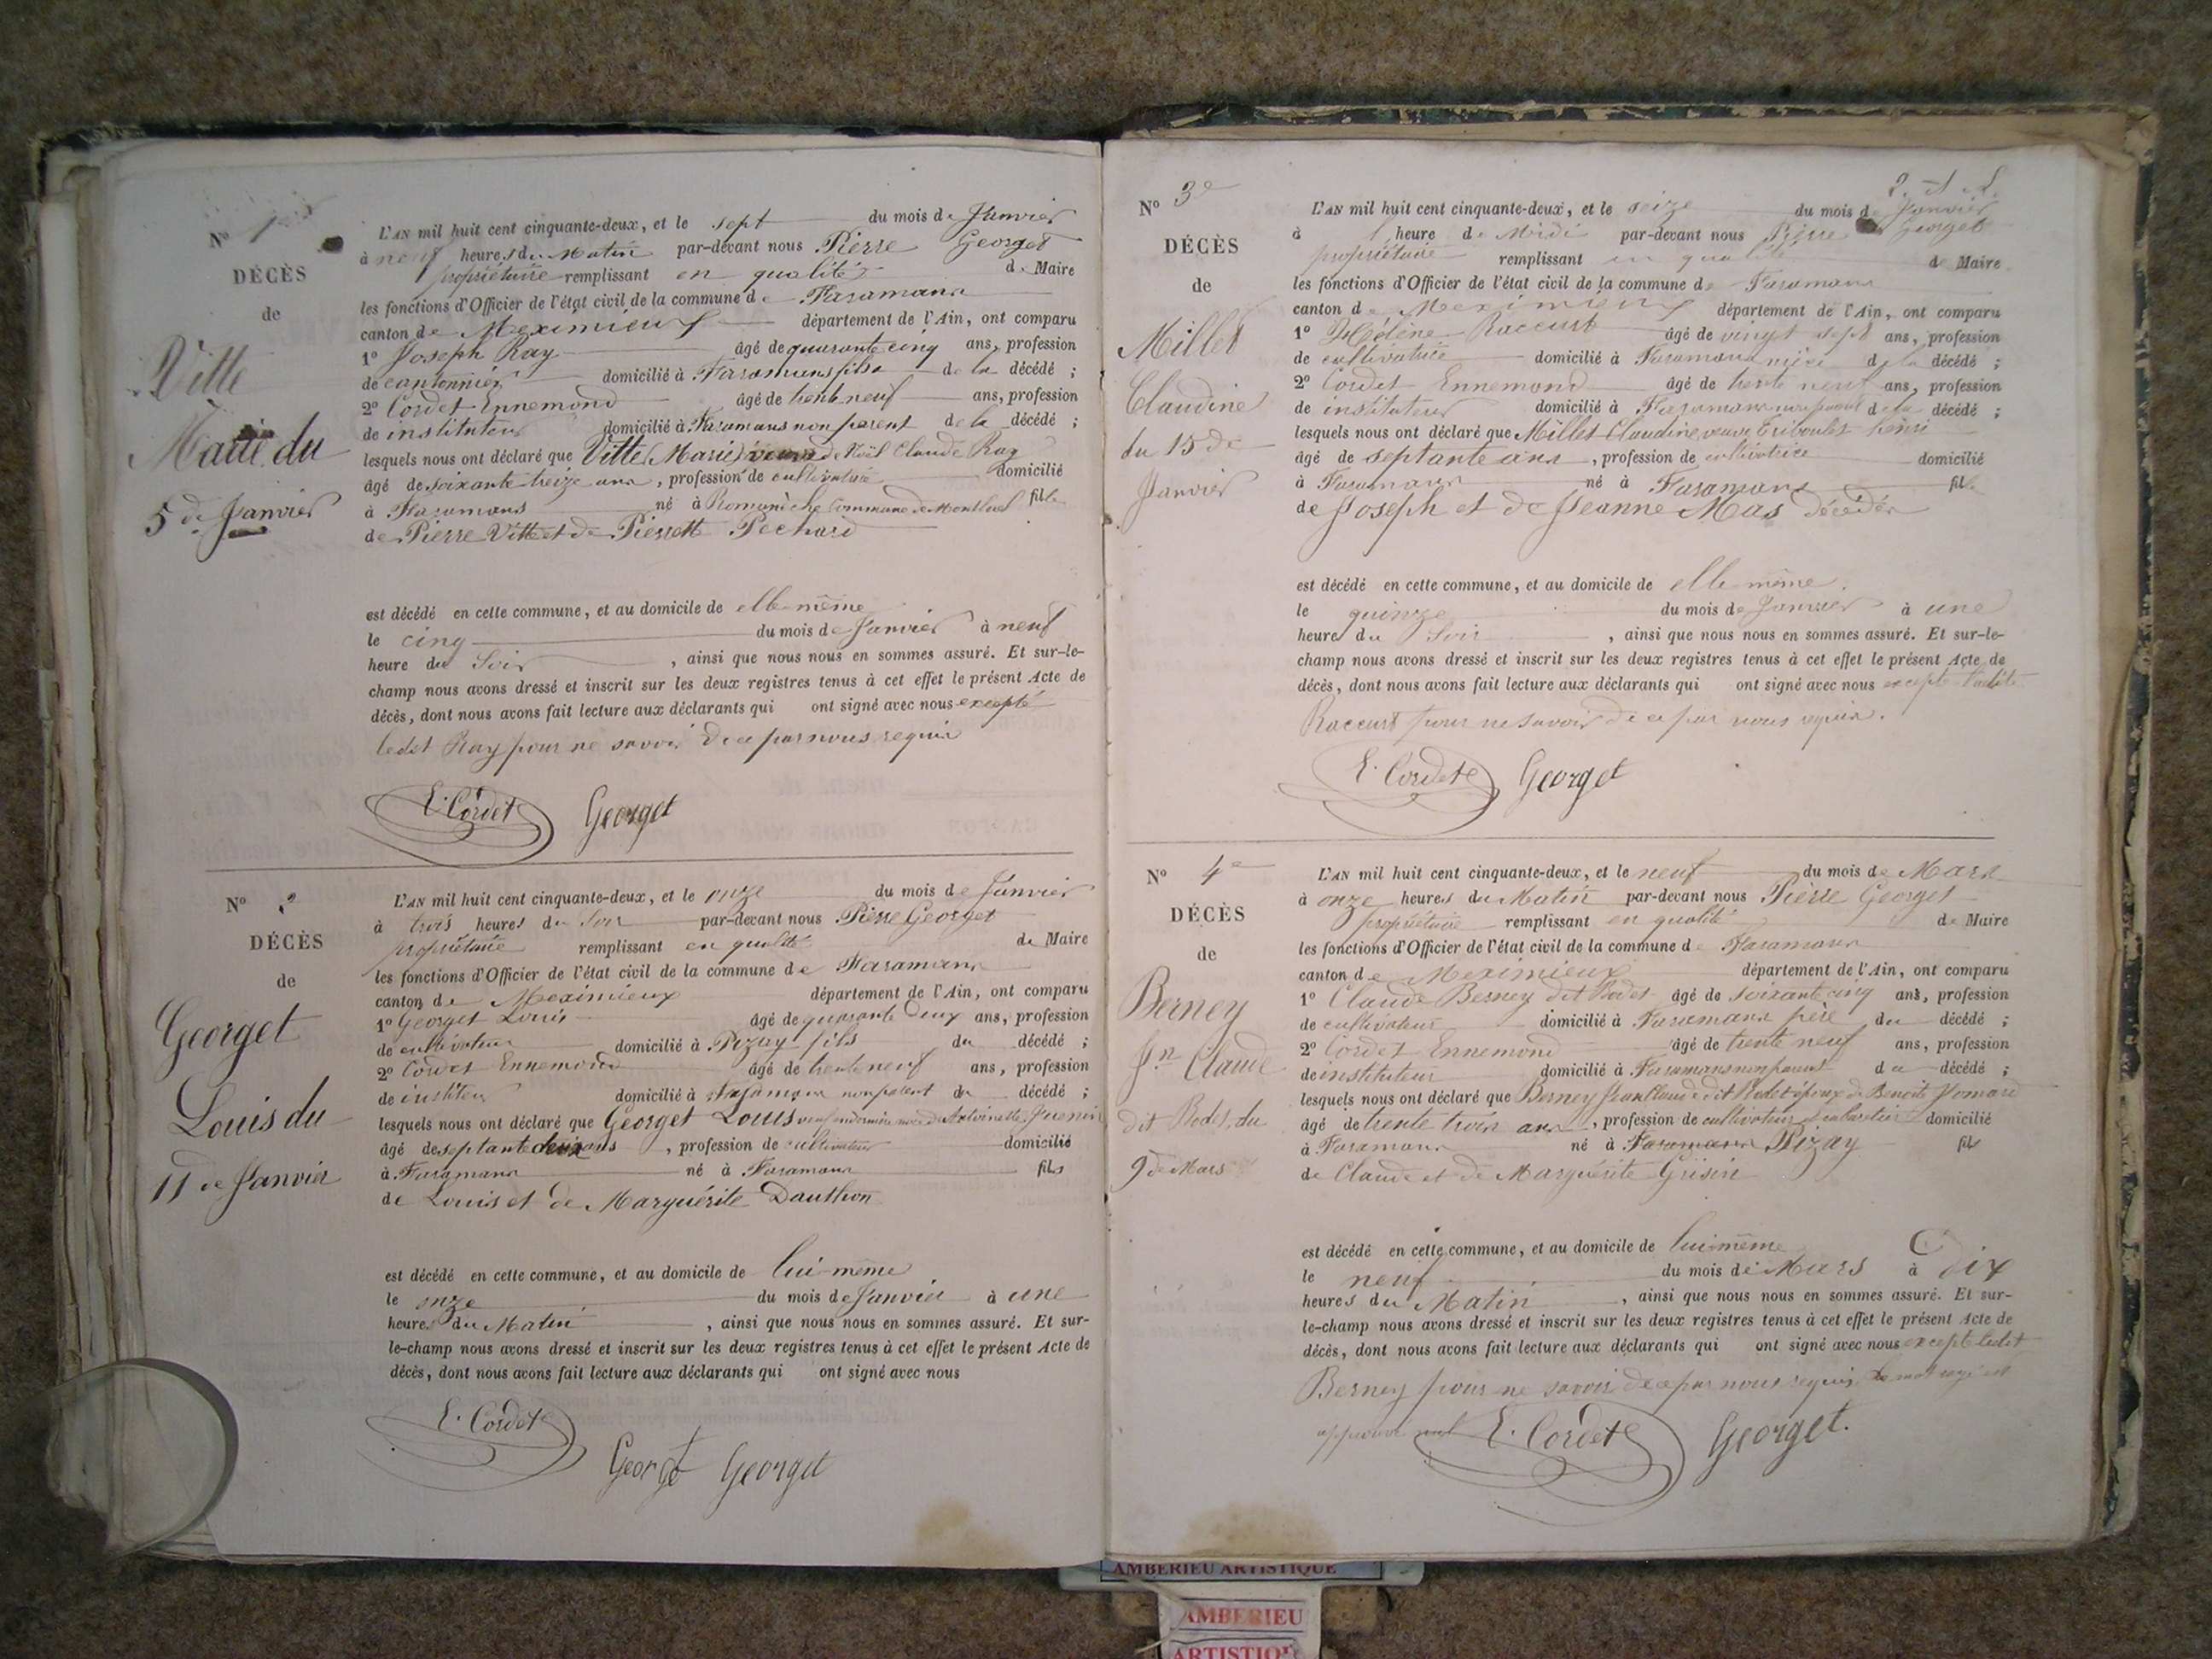 N° 1er
DÉCÈS
de
Vitte
Marie du
5 de Janvier
L'AN mil huit cent cinquante-deux, et le sept du mois de Janvier
à neuf heures du Matin par-devant nous Pierre Georget
propriétaire remplissant en qualité de Maire
les fonctions d'Officier de l'état civil de la commune de Faramans
canton de Meximieux département de l'Ain, ont comparu
1° Joseph Ray âgé de quarante cinq ans, profession
de cantonnier domicilié à Faramans fils de la décédé ;
2° Cordet Ennemond âgé de trente neuf ans, profession
de instituteur domicilié à Faramans non parent de la décédé ;
lesquels nous ont déclaré que Vitte (Marie) veuve de Noël Claude Ray
âgé de soixante treize ans, profession de cultivatrice domicilié
à Faramans né à Romanèche commune de Montluel fille
de Pierre Vitte et de Pierrette Pechard
est décédé en cette commune, et au domicile de elle-même
le cinq du mois de Janvier à neuf
heure du Soir, ainsi que nous nous en sommes assuré. Et sur-le-
champ nous avons dressé et inscrit sur les deux registres tenus à cet effet le présent Acte de
décès, dont nous avons fait lecture aux déclarants qui ont signé avec nous excepté
ledit Ray pour ne savoir de ce par nous requis
E. Cordet Georget
N° 2
DÉCÈS
de
Georget
Louis du
11 de Janvier
L'AN mil huit cent cinquante-deux, et le onze du mois de Janvier
à trois heures du Soir par-devant nous Pierre Georget
propriétaire remplissant en qualité de Maire
les fonctions d'Officier de l'état civil de la commune de Faramans
canton de Meximieux département de l'Ain, ont comparu
1° Georget Louis âgé de quarante deux ans, profession
de cultivateur domicilié à Pizay fils du décédé ;
2° Cordet Ennemond âgé de trente neuf ans, profession
de institeur domicilié à Faramans non parent du décédé ;
lesquels nous ont déclaré que Georget Louis veuf en dernière noce de Antoinette
âgé de septante deux ans, profession de cultivateur domicilié
à Faramans né à Faramans fils
de Louis et de Marguérite Dauthon
est décédé en cette commune, et au domicile de lui-même
le onze du mois de Janvier à une
heures du Matin, ainsi que nous nous en sommes assuré. Et sur-
le-champ nous avons dressé et inscrit sur les deux registres tenus à cet effet le présent Acte de
décès, dont nous avons fait lecture aux déclarants qui ont signé avec nous
E. Cordet
Georget Georget
N° 3e
DÉCÈS
de
Millet
Claudine
du 15 de
Janvier
L'AN mil huit cent cinquante-deux, et le seize du mois de Janvier
à 1 heure de Midi par-devant nous Pierre Georget
propriétaire remplissant en qualité de Maire
les fonctions d'Officier de l'état civil de la commune de Faramans
canton de Meximieux département de l'Ain, ont comparu
1° Hélène Raccurt âgé de vingt sept ans, profession
de cultivatrice domicilié à Faramans nièce de la décédé ;
2° Cordet Ennemond âgé de trente neuf ans, profession
de instituteur domicilié à Faramans non parent de la décédé ;
lesquels nous ont déclaré que Millet Claudine, veuve Triboulet henri
âgé de septante ans, profession de cultivatrice domicilié
à Faramans né à Faramans fille
de Joseph et de Jeanne Mas décédés
est décédé en cette commune, et au domicile de elle même
le quinze du mois de Janvier à une
heure du Soir, ainsi que nous nous en sommes assuré. Et sur-le-
champ nous avons dressé et inscrit sur les deux registres tenus à cet effet le présent Acte de
décès, dont nous avons fait lecture aux déclarants qui ont signé avec nous excepté ladite
Raccurt pour ne savoir de ce par nous requis.
E. Cordet Georget
N° 4e
DÉCÈS
de
Berney
Jn Claude
dit Rodet, du
9 de Mars
L'AN mil huit cent cinquante-deux, et le neuf du mois de Mars
à onze heures du Matin par-devant nous Pierre Georget
propriétaire remplissant en qualité de Maire
les fonctions d'Officier de l'état civil de la commune de Faramans
canton de Meximieux département de l'Ain, ont comparu
1° Claude Berney dit Rodet âgé de soixante cinq ans, profession
de cultivateur domicilié à Faramans père du décédé ;
2° Cordet Ennemond âgé de trente neuf ans, profession
de instituteur domicilié à Faramans non parent du décédé ;
lesquels nous ont déclaré que Berney Jean Claude dit Rodet époux de Benoite
âgé de trente trois ans, profession de cultivateur cabaretier domicilié
à Faramans né à Faramans Pizay fils
de Claude et de Marguérite Grisin
est décédé en cette commune, et au domicile de lui même
le neuf du mois de Mars à Dix
heures du Matin, ainsi que nous nous en sommes assuré. Et sur-
le-champ nous avons dressé et inscrit sur les deux registres tenus à cet effet le présent Acte de
décès, dont nous avons fait lecture aux déclarants qui ont signé avec nous excepté ledit
Berney pour ne savoir de ce par nous requis le mot rayé est
approuvé nul E. Cordet Georget.
AMBERIEU ARTISTIQUE
AMBERIEU
ARTISTIQUE